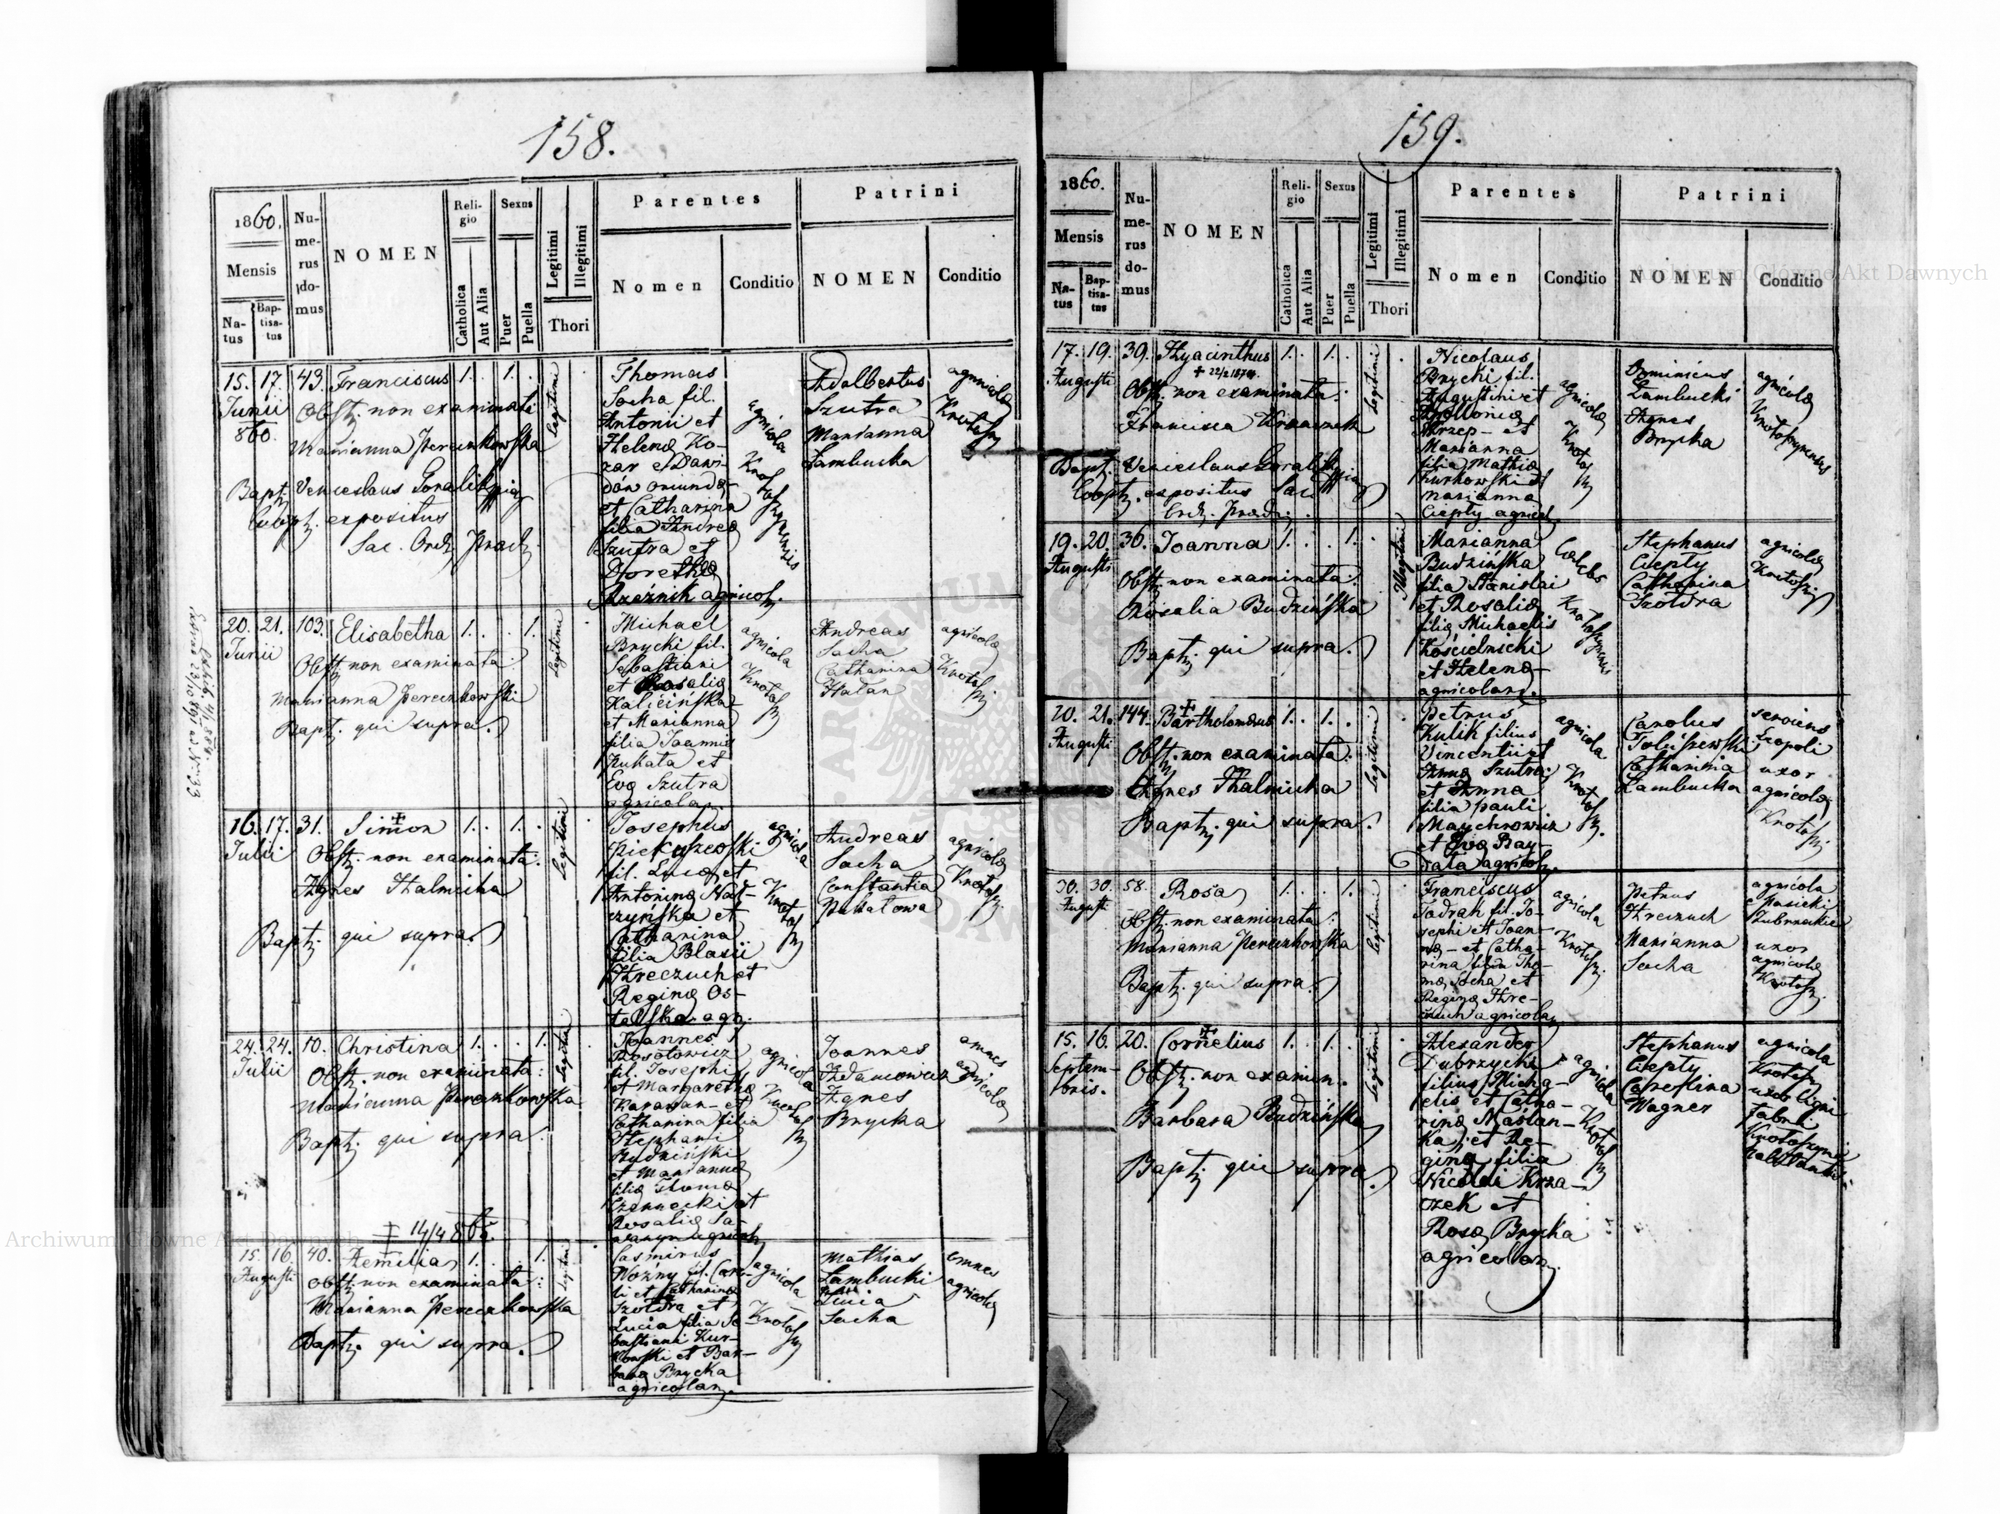 158.
1860.
Mensis
Na-
tus
Bap-
tisa-
tus
Nu-
me-
rus
do-
mus
NOMEN
Reli-
gio
Catholica
Aut Alia
Sexus
Puer
Puella
Legitimi
Illegitimi
Thori
Parentes
Nomen
Conditio
Patrini
NOMEN
Conditio
15. 17. 43. Franciscus 1. 1.
Junii
860.
Obst. non examinata
Marianna Pereczkowska
Bapt. Venceslaus Goralik
Coopt. expositus
Sac. Ord. Praed.
Legitimi
Thomas
Socha fil.
Antonii et
Helenæ Ko-
zar e Dawi-
dów oriundæ
et Catharina
filia Andreæ
Szutra et
Dorothea
Rzeźnik agricol.
agricola
Krotoszynensis
Adalbertus
Szutra
Marianna
Lambucka
agricolæ
Krotosz.
20. 21. 103. Elisabetha 1. 1.
Junii
Obst. non examinata
Marianna Pereczkowski
Bapt. qui supra.
Legitimi
Michael
Brycki fil.
Sebastiani
et Rosaliæ
Kalicińska
et Marianna
filia Joannis
Kukata et
Eva Szutra
agricolar.
agricola
Krotosz.
Andreas
Socha
Catharina
Hałan
agricolæ
Krotosz.
16. 17. 31. Simon 1. 1.
Julii
Obst. non examinata.
Agnes Halmicka
Bapt. qui supra.
Legitimi
Josephus
fil. Lucæ et
Antoninæ Na-
czyńska et
Catharina
filia Blasii
Hreczuch et
Reginæ Os-
talska agr.
agricola
Krotosz.
Andreas
Socha
Constantia
Pukałowa
agricolæ
Krotosz.
24. 24. 10. Christina 1. 1.
Julii
Obst. non examinata:
Marianna Pereczkowska
Bapt. qui supra.
Joannes
Kosotowicz
fil. Josephi
et Margaretha
Karaban et
Catharina filia
Stephani
Budziński
et Marianna
filiæ Thomæ
Czernecki et
Rosaliæ
agricola
Krotosz.
Joannes
Adamowicz
Agnes
Brycka
omnes
agricolæ
+ 14/4 865.
15. 16. 40. Aemilia 1. 1.
Augusti
Obst. non examinata:
Marianna Pereczkowska
Bapt. qui supra.
Legitimi
Casimirus
Woźny fil. Caro-
li et Catharina
Szotdra et
Lucia filia Se-
bastiani Kur-
kowski et Bar-
bara Brycka
agricolar.
agricola
Krotosz.
Mathias
Lambucki
Lucia
Socha
omnes
agricolæ
159.
1860.
Mensis
Na-
tus
Bap-
tisa-
tus
Nu-
me-
rus
do-
mus
NOMEN
Reli-
gio
Catholica
Aut Alia
Sexus
Puer
Puella
Legitimi
Illegitimi
Thori
Parentes
Nomen
Conditio
Patrini
NOMEN
Conditio
17. 19. 39. Hyacinthus 1. 1.
Augusti
Obst. non examinata:
Francisca Krzaczek
Bapt. Venceslaus Goralik
Coopt. expositus Sac.
Ord. Praed.
Legitimi
Nicolaus
Brycki fil.
Augustini et
Apolloniæ
Skrzep et
Marianna
filia Mathiæ
Kurkowski et
Marianna
Ciepły agricol.
agricola
Krotosz.
Dominicus
Lambucki
Agnes
Brycka
agricolæ
Krotoszynensis
19. 20. 36. Joanna 1. 1.
Augusti
Obst. non examinata.
Rosalia Budzińska
Bapt. qui supra.
Illegitimi
Marianna
Budzińska
filia Stanislai
et Rosaliæ
filiæ Michaelis
Kościelnicki
et Helenæ
agricolar.
Cælebs
Krotoszynensis
Stephanus
Ciepły
Catharina
Szotdra
agricolæ
Krotosz.
20. 21. 144. Bartholomæus 1. 1.
Augusti
Obst. non examinata:
Agnes Halmicka
Bapt. qui supra.
Legitimi
Petrus
Kulik filius
Vincentii et
Annæ Szutra
et Anna
filia Pauli
Maychrowicz
et Eva Bay-
rata agricol.
agricola
Krotosz.
Carolus
Catharina
Lambucka
serviens
Leopoli
uxor
agricolæ
Krotosz.
30. 30. 58. Rosa 1. 1.
Augusti
Obst. non examinata:
Marianna Pereczkowska
Bapt. qui supra.
Legitimi
Franciscus
Jadrah fil. Jo-
sephi et Joan-
næ et Catha-
rina filia Tho-
mæ Socha et
Reginæ Hre-
czuch agricolar.
agricola
Krotosz.
Petrus
Hreczuch
Marianna
Socha
agricola
e Pasieki
Zubrzyckie
uxor
agricolæ
Krotosz.
15. 16. 20. Cornelius 1. 1.
Septem-
bris.
Obst. non examin.
Barbara Budzińska
Bapt. qui supra.
Legitimi
Alexander
Dubrzycki
filius Micha-
elis et Catha-
rinæ Maślan-
ka, et Re-
gina filia
Nicolai Krza-
czek et
Rosæ Brycka
agricolar.
agricola
Krotosz.
Stephanus
Ciepły
Carolina
Wagner
agricola
Krotosz.
uxor ligni
fabri
Archiwum Główne Akt Dawnych
Archiwum Główne Akt Dawnych